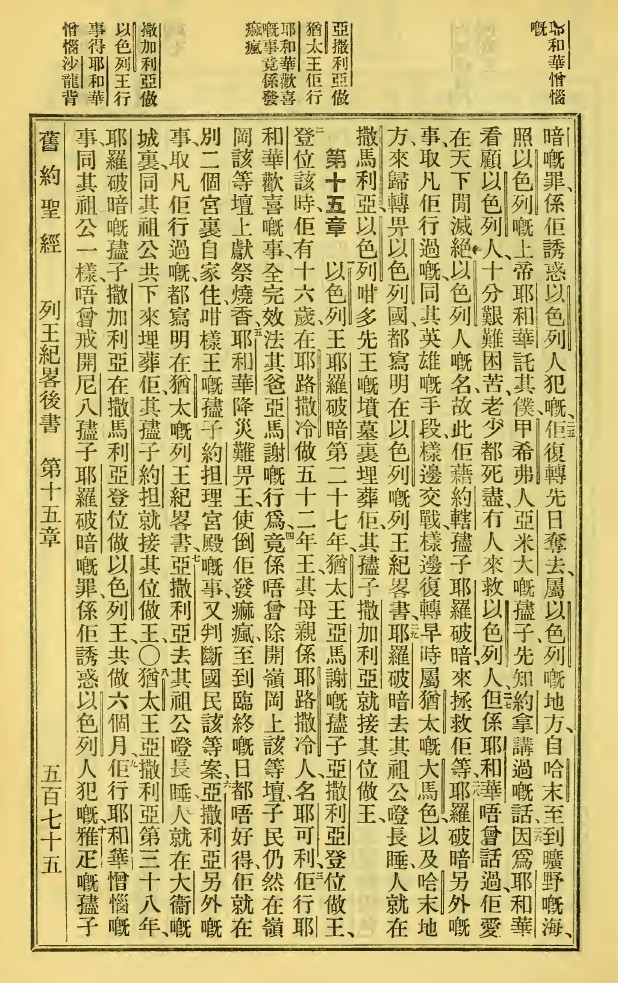 耶和華憎惱
嘅
亞撒利亞做
猶太王佢行
耶和華歡喜
嘅事竟係發
痲瘋
撒加利亞做
以色列王行
事得耶和華
憎惱沙龍背
暗嘅罪、係佢誘惑以色列人犯嘅、二五佢復轉先日奪去、屬以色列嘅地方、自哈末至到曠野嘅海、
照以色列嘅上帝耶和華託其僕甲希弗人亞米大嘅孻子先知約拿講過嘅話、二六因爲耶和華
看顧以色列人十分艱難困苦、老少都死盡、冇人來救以色列人、二七但係耶和華唔曾話過佢愛
在天下開滅絕以色列人嘅名、故此佢藉約轄孻子耶羅破暗來拯救佢等、二八耶羅破暗另外嘅
事、取凡佢行過嘅、同其英雄嘅手段、樣邊交戰、樣邊復轉早時屬猶太嘅大馬色、以及哈末地
方、來歸轉畀以色列國、都寫明在以色列嘅列王紀畧書、二九耶羅破暗去其祖公嶝長睡、人就在
撒馬利亞以色列咁多先王嘅墳墓裏埋葬佢、其孻子撒加利亞就接其位做王、
第十五章 以色列王耶羅破暗第二十七年、猶太王亞馬謝嘅孻子亞撒利亞登位做王、
二登位該時、佢有十六歲、在耶路撒冷做五十二年王、其母親係耶路撒冷人、名耶可利、三佢行耶
和華歡喜嘅事、全完效法其爸亞馬謝嘅行爲、四竟係唔曾除開嶺岡上該等壇、子民仍然在嶺
岡該等壇上獻祭燒香、五耶和華降災難畀王、使倒佢發痲瘋、至到臨終嘅日都唔好得、佢就在
別二個宮裏自家住、咁樣王嘅孻子約担理宮殿嘅事、又判斷國民該等案、六亞撒利亞另外嘅
事、取凡佢行過嘅、都寫明在猶太嘅列王紀畧書、七亞撒利亞去其祖公嶝長睡、人就在大衞嘅
城裏、同其祖公共下來埋葬佢、其孻子約担就接其位做王、〇八猶太王亞撒利亞第三十八年、
耶羅破暗嘅孻子撒加利亞在撒馬利亞登位做以色列王、共做六個月、九佢行耶和華憎惱嘅
事、同其祖公一樣、唔曾戒開尼八孻子耶羅破暗嘅罪、係佢誘惑以色列人犯嘅、十雅疋嘅孻子
舊約聖經 列王紀畧後書 第十五章 五百七十五